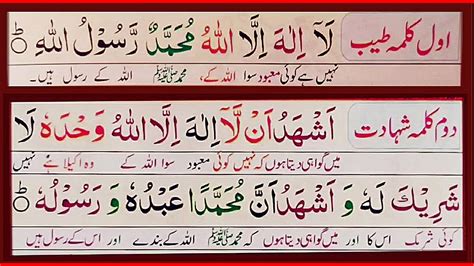 اول کلمہ طیب
لَآ اِلٰهَ اِلَّا اللّٰهُ مُحَمَّدٌ رَّسُوْلُ اللّٰهِ ؕ
نہیں ہے کوئی معبود سوا اللہ کے، محمد ﷺ اللہ کے رسول ہیں۔
دوم کلمہ شہادت
اَشْهَدُ اَنْ لَّآ اِلٰهَ اِلَّا اللّٰهُ وَحْدَهٗ لَا
میں گواہی دیتا ہوں کہ نہیں کوئی معبود سوا اللہ کے وہ اکیلا ہے نہیں
شَرِيْكَ لَهٗ وَ اَشْهَدُ اَنَّ مُحَمَّدًا عَبْدُهٗ وَ رَسُوْلُهٗ ؕ
کوئی شریک اس کا اور میں گواہی دیتا ہوں کہ محمد ﷺ اللہ کے بندے اور اس کے رسول ہیں